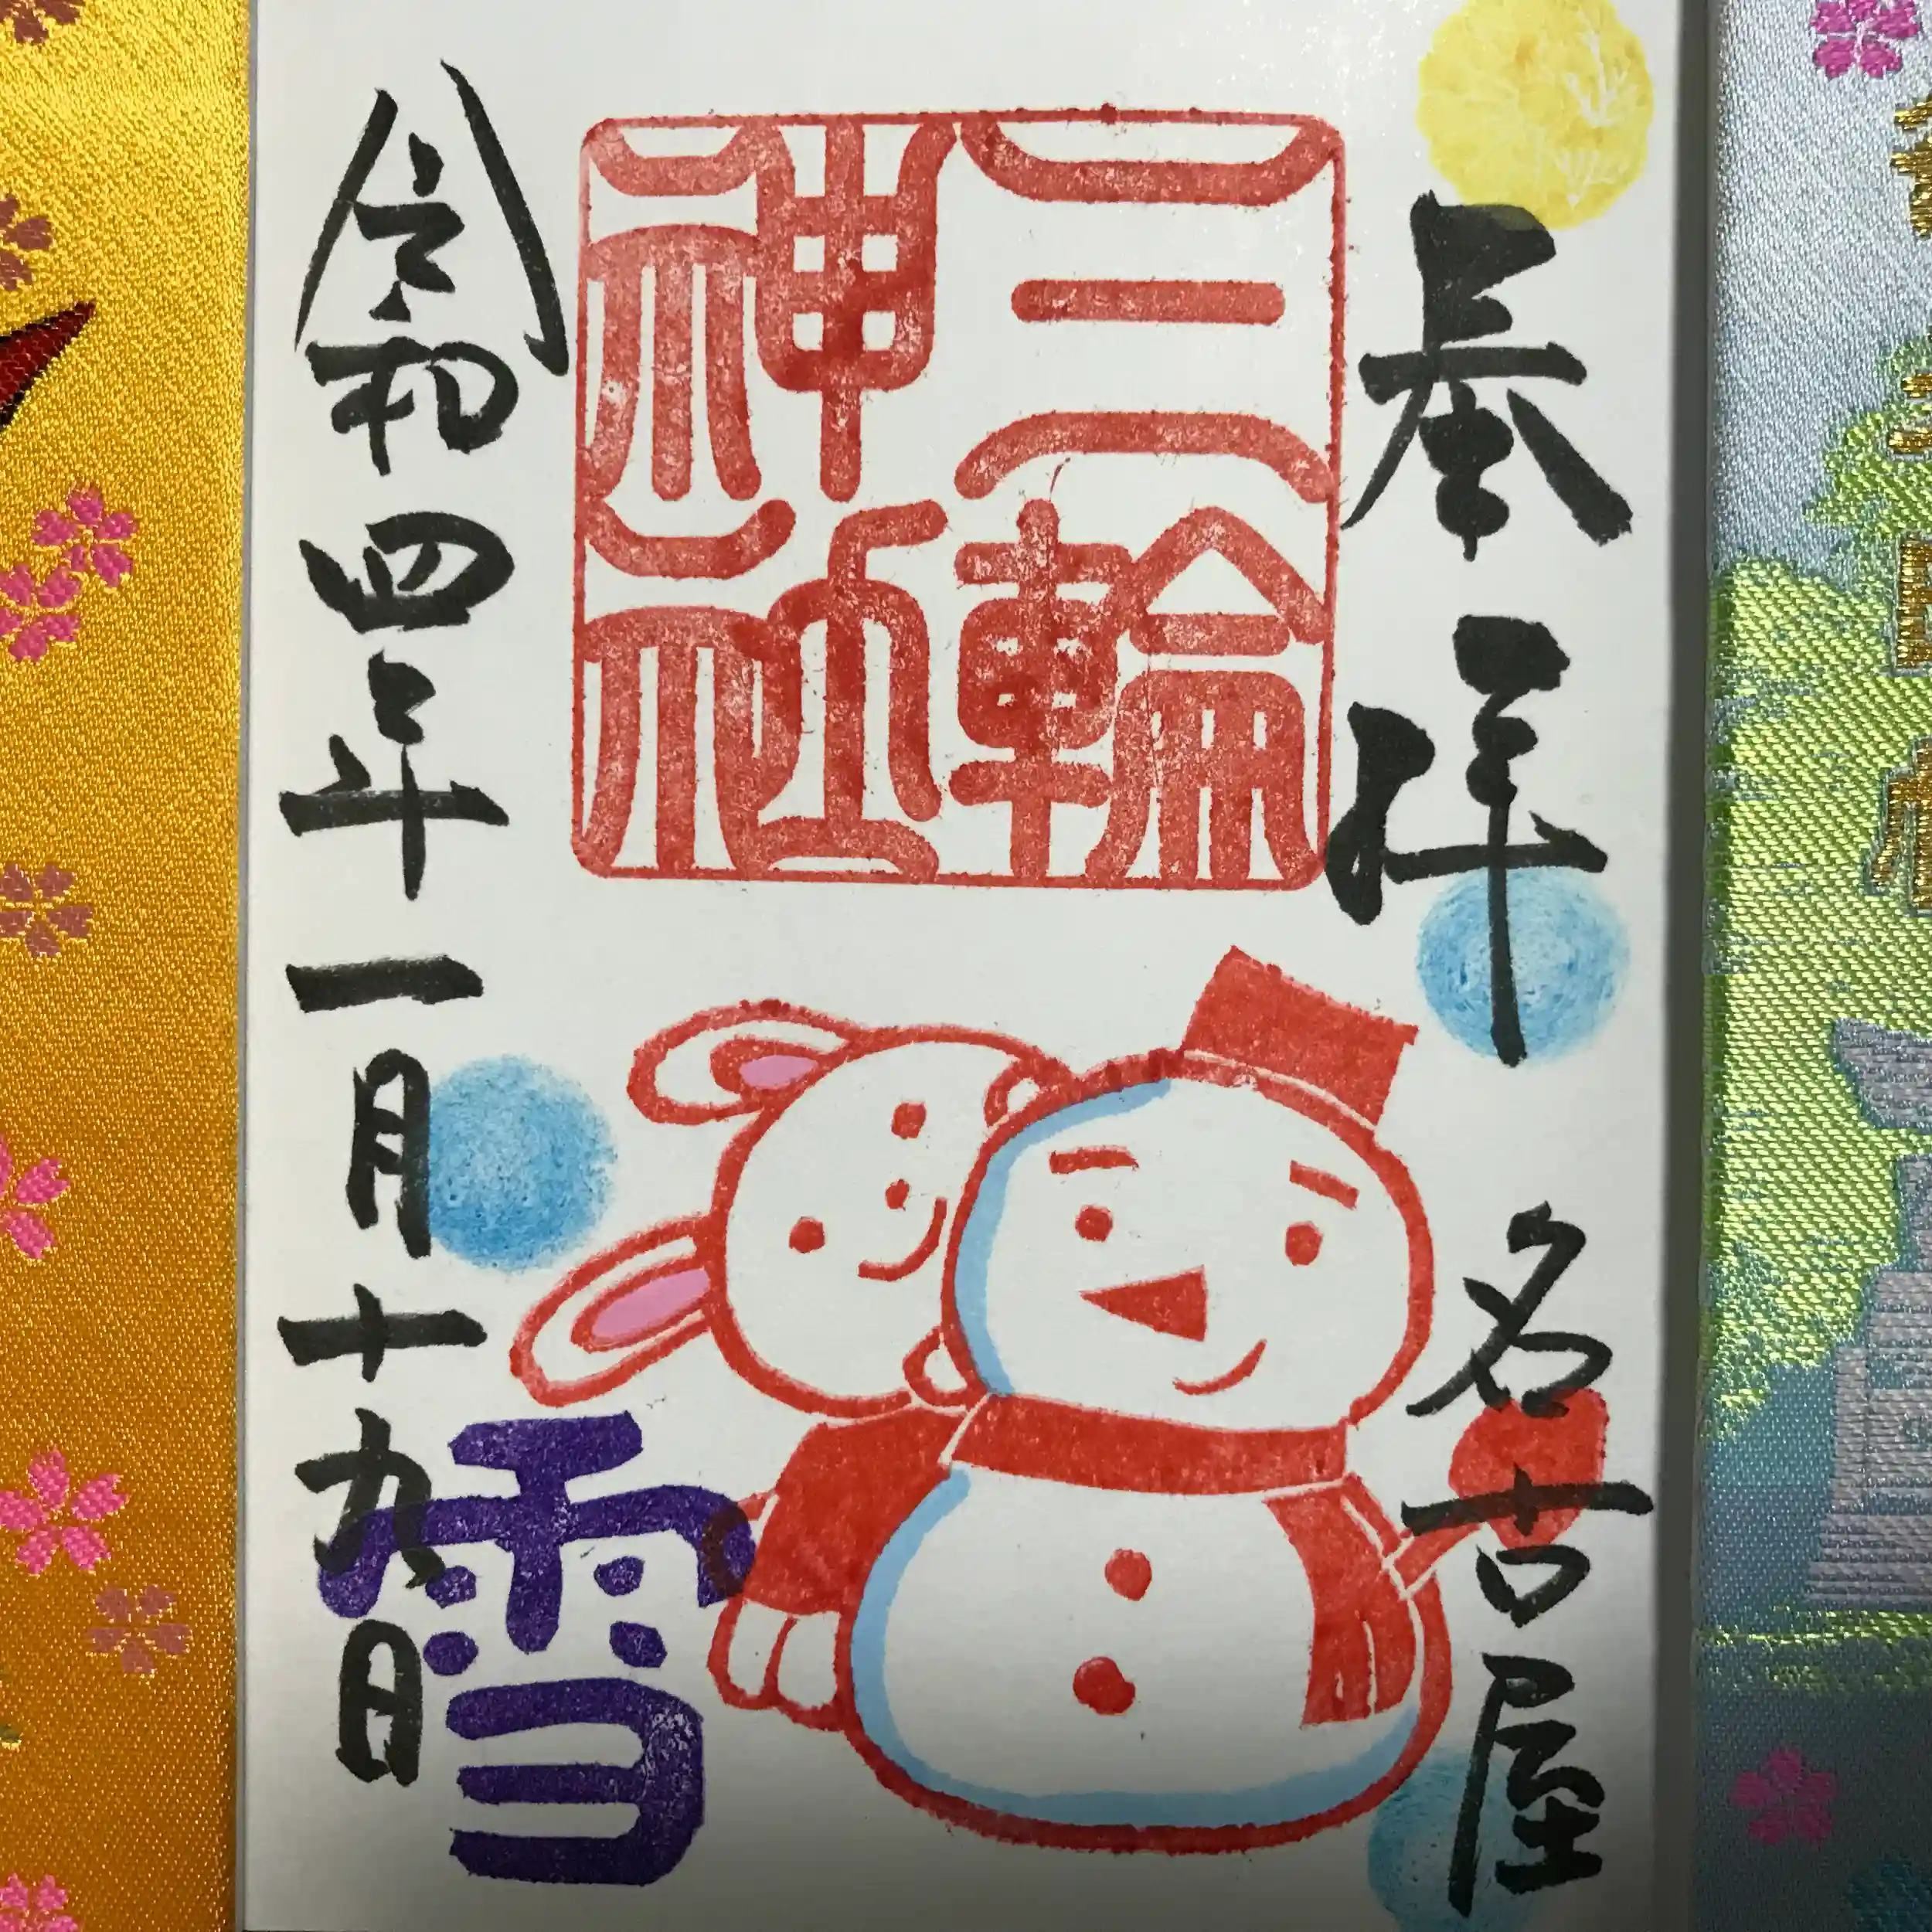 奉拝
名古屋
三輪
神社
雪
令和四年一月十九日